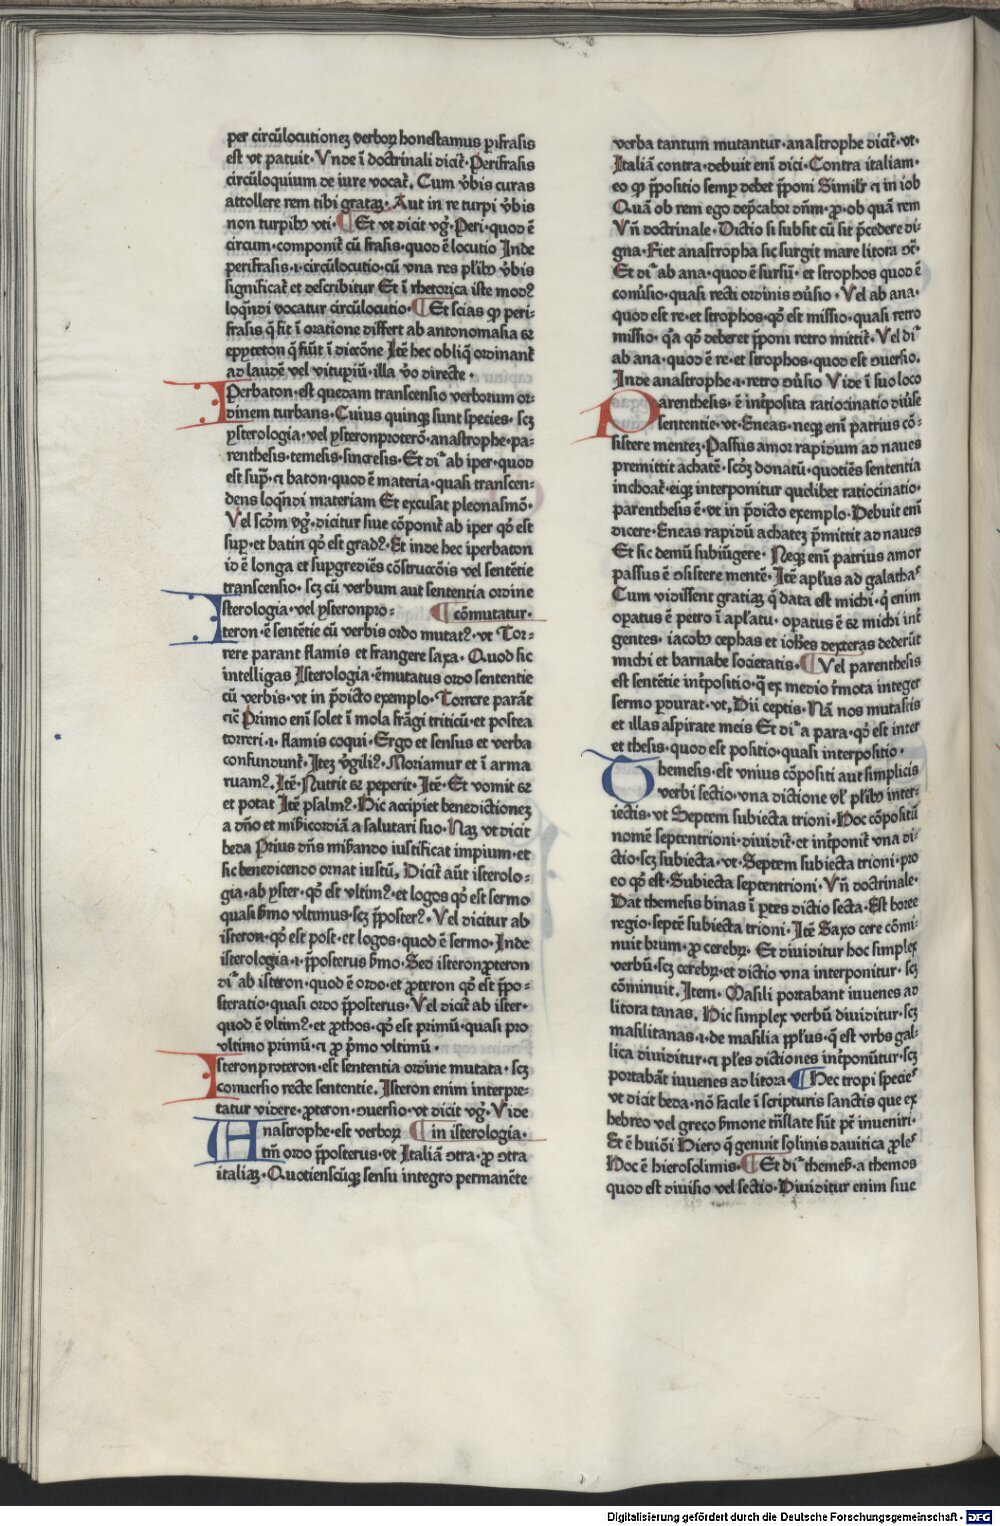 per circūlocutionez verboꝝ honestamus ꝑifrasis
est vt patuit· Vnde ī doctrinali dicit̄· Perifrasis
circūloquium de iure vocat̄. Cum v̄bis curas
attollere rem tibi grataꝫ· Aut in re turpi v̄bis
non turpibꝰ vti· ¶Et vt dicit vg̅· Peri· quod ē
circum· componit̄ cū frasis· quod ē locutio Inde
perifrasis·i·circūlocutio·cū vna res pl̄ibꝰ v̄bis
significat̄ et describitur Et ī rhetorica iste modꝰ
loqn̄di vocatur circūlocutio· ¶Et scias ꝙ peri-
frasis q̄ fit ī oratione differt ab antonomasia ⁊
epyteton q̄ fiūt ī dicc̄one Itē hec obliq̄ ordinant̄
ad laudē vel vituꝑiū· illa v̄o directe·
IPerbaton·est quedam transcensio verborum or-
dinem turbans· Cuius quinqꝫ sunt species· scꝫ
ysterologia·vel ysteronproterō·anastrophe·pa-
renthesis·temesis·sincresis·Et dr̄ ab iper·quod
est supͣ·⁊ baton·quod ē materia·quasi transcen-
dens loqn̄di materiam Et excusat pleonasmō·
Vel scd̄m vg̅·dicitur siue cōponit̄ ab iper qd̄ est
supͣ·et batin qd̄ est gradꝰ· Et inde hec iperbaton
id ē longa et suꝑgrediēs cōstrucc̄ois vel sentētie
transcensio·scꝫ cū verbum aut sententia ordine
Isterologia·vel ysteronpro- ¶cōmutatur·
teron·ē sentētie cū verbis ordo mutatꝰ·vt Tor-
rere parant flamis et frangere saxa· Quod sic
intelligas Isterologia·ē mutatus ordo sententie
cū verbis·vt in p̄dicto exemplo·Torrere parāt
⁊c̄ Primo enī solet ī mola frāgi triticū·et postea
torreri·i·flamis coqui·Ergo et sensus et verba
confundunt̄·Iteꝫ v̄giliꝰ·Moriamur et ī arma
ruamꝰ· Itē·Nutrit ⁊ peperit·Itē·Et vomit ⁊
et potat Itē psalmꝰ·Hic accipiet benedictionez
a dn̄o et mīsericordiā a salutari suo· Naꝫ vt dicit
beda Prius dn̄s misērando iustificat impium·et
sic benedicendo ornat iustū. Dicit̄ aūt isterolo-
gia·ab yster·qd̄ est vltimꝰ·et logos qd̄ est sermo
quasi s̄mo vltimus·scꝫ p̄posterꝰ· Vel dicitur ab
isteron·qd̄ est post·et logos·quod ē sermo·Inde
isterologia·i·p̄posterus s̄mo·Sed isteronꝓteron
dr̄ ab isteron·quod ē ordo·et ꝓteron qd̄ est p̄po-
steratio·quasi ordo p̄posterus· Vel dicit̄ ab ister·
quod ē vltimꝰ·et ꝓthos·qd̄ est primū·quasi pro
vltimo primū·⁊ ꝓ p̄mo vltimū·
Isteronproteron·est sententia ordine mutata·scꝫ
conuersio recte sententie·Isteron enim interpre-
tatur videre·ꝓteron·ꝯuersio·vt dicit vg̅·Vide
Anastrophe·est verboꝝ ¶in isterologia·
tm̄ ordo p̄posterus·vt Italiā ꝯtra·ꝓ ꝯtra
italiaꝫ·Quotienscūqꝫ sensu integro permanēte
verba tantum mutantur·anastrophe dicit̄·vt·
Italiā contra·debuit enī dici·Contra italiam·
eo ꝙ p̄positio semꝑ debet p̄poni Similr̄ ⁊ in iob
Quā ob rem ego dep̄cabor dn̄m·ꝓ·ob quā rem
Vn̄ doctrinale·Dictio si subsit cū sit p̄cedere di-
gna·Fiet anastropha sic surgit mare litora ⁊c̄·
Et dr̄ ab ana·quod ē sursū·et strophos quod ē
conūsio·quasi recti ordinis ꝯūsio·Vel ab ana·
quod est re·et strophos·qd̄ est missio·quasi retro
missio·qͣ qd̄ deberet p̄poni retro mittit̄·Vel dr̄
ab ana·quod ē re·et strophos·quod est ꝯuersio·
Inde anastrophe·i·retro ꝯūsio Vide ī suo loco
Parenthesis·ē int̄posita ratiocinatio diūse
sententie·vt·Eneas·neqꝫ enī patrius cō-
sistere mentez·Passus amor rapidum ad naues
premittit achatē·scd̄ꝫ donatū·quotiēs sententia
inchoat̄·eiqꝫ interponitur quelibet ratiocinatio·
parenthesis ē·vt in p̄dicto exemplo·Debuit enī
dicere·Eneas rapidū achatez p̄mittit ad naues
Et sic demū subiūgere· Neqꝫ enī patrius amor
passus ē ꝯsistere mentē·Itē apl̄us ad galathaˢ
Cum vidissent gratiaꝫ q̄ data est michi·q̄ enim
opatus ē petro ī apl̄atu·opatus ē ⁊ michi int̄
gentes·iacobꝰ cephas et ioh̄es dexteras dederūt
michi et barnabe societatis·¶Vel parenthesis
est sentētie int̄positio·q̄ ex medio r̄mota integer
sermo ꝑdurat·vt. Dii ceptis·Nā nos mutastis
et illas aspirate meis Et dr̄ a para·qd̄ est inter
et thesis·quod est positio·quasi interpositio·
Themesis·est vnius cōpositi aut simplicis
verbi sectio·vna dictione vl̄ pl̄ibꝰ inter-
iectis·vt Septem subiecta trioni·Hoc cōpositū
nomē septentrioni·diuidit̄·et int̄ponit̄ vna di-
ctio·scꝫ subiecta·vt·Septem subiecta trioni·pro
eo qd̄ est·Subiecta septentrioni·Vn̄ doctrinale·
Dat themesis binas ī ꝑtes dictio secta·Est boree
regio·septē subiecta trioni·Itē Saxo cere cōmi-
nuit brum·ꝓ cerebꝝ·Et diuiditur hoc simplex
verbū·scꝫ cerebꝝ·et dictio vna interponitur·scꝫ
cōminuit. Item·Masili portabant iuuenes ad
litora tanas. Hic simplex verbū diuiditur·scꝫ
masilitanas·i·de masilia ꝓp̄ius·q̄ est vrbs gal-
lica diuiditur·⁊ pl̄es dictiones int̄ponūtur·scꝫ
portabāt iuuenes ad litora·¶Hec tropi specieˢ
vt dicit beda·nō facile ī scripturis sanctis que ex
hebreo vel greco s̄mone trn̄slate sūt pn̄t inueniri·
Et ē huiōi Hiero q̄ genuit solimis dauitica ꝓleˢ
Hoc ē hierosolimis·¶Et dr̄ themes̄·a themos
quod est diuisio vel sectio·Diuiditur enim siue
Digitalisierung gefördert durch die Deutsche Forschungsgemeinschaft - DFG